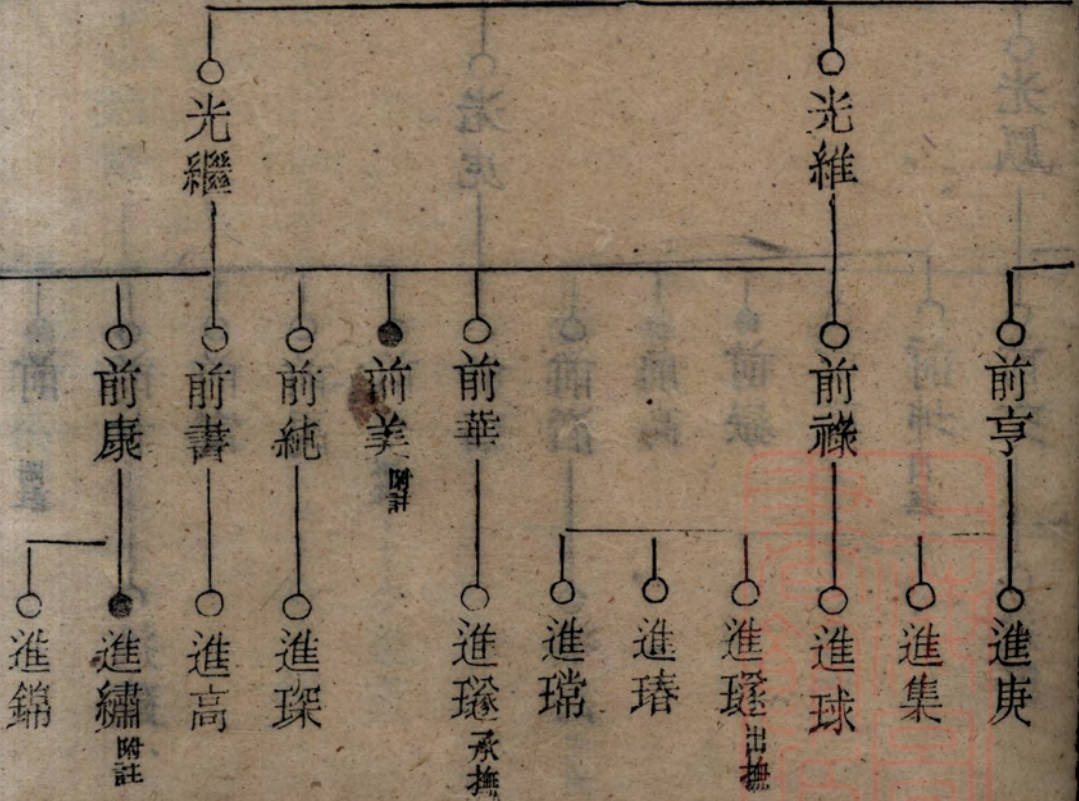 光維
光繼
前亨
前祿
前華
前美 附註
前純
前書
前康
進庚
進集
進球
進璲 出撫
進瑃
進瑺
進璲 承撫
進琛
進高
進繡 附註
進錦